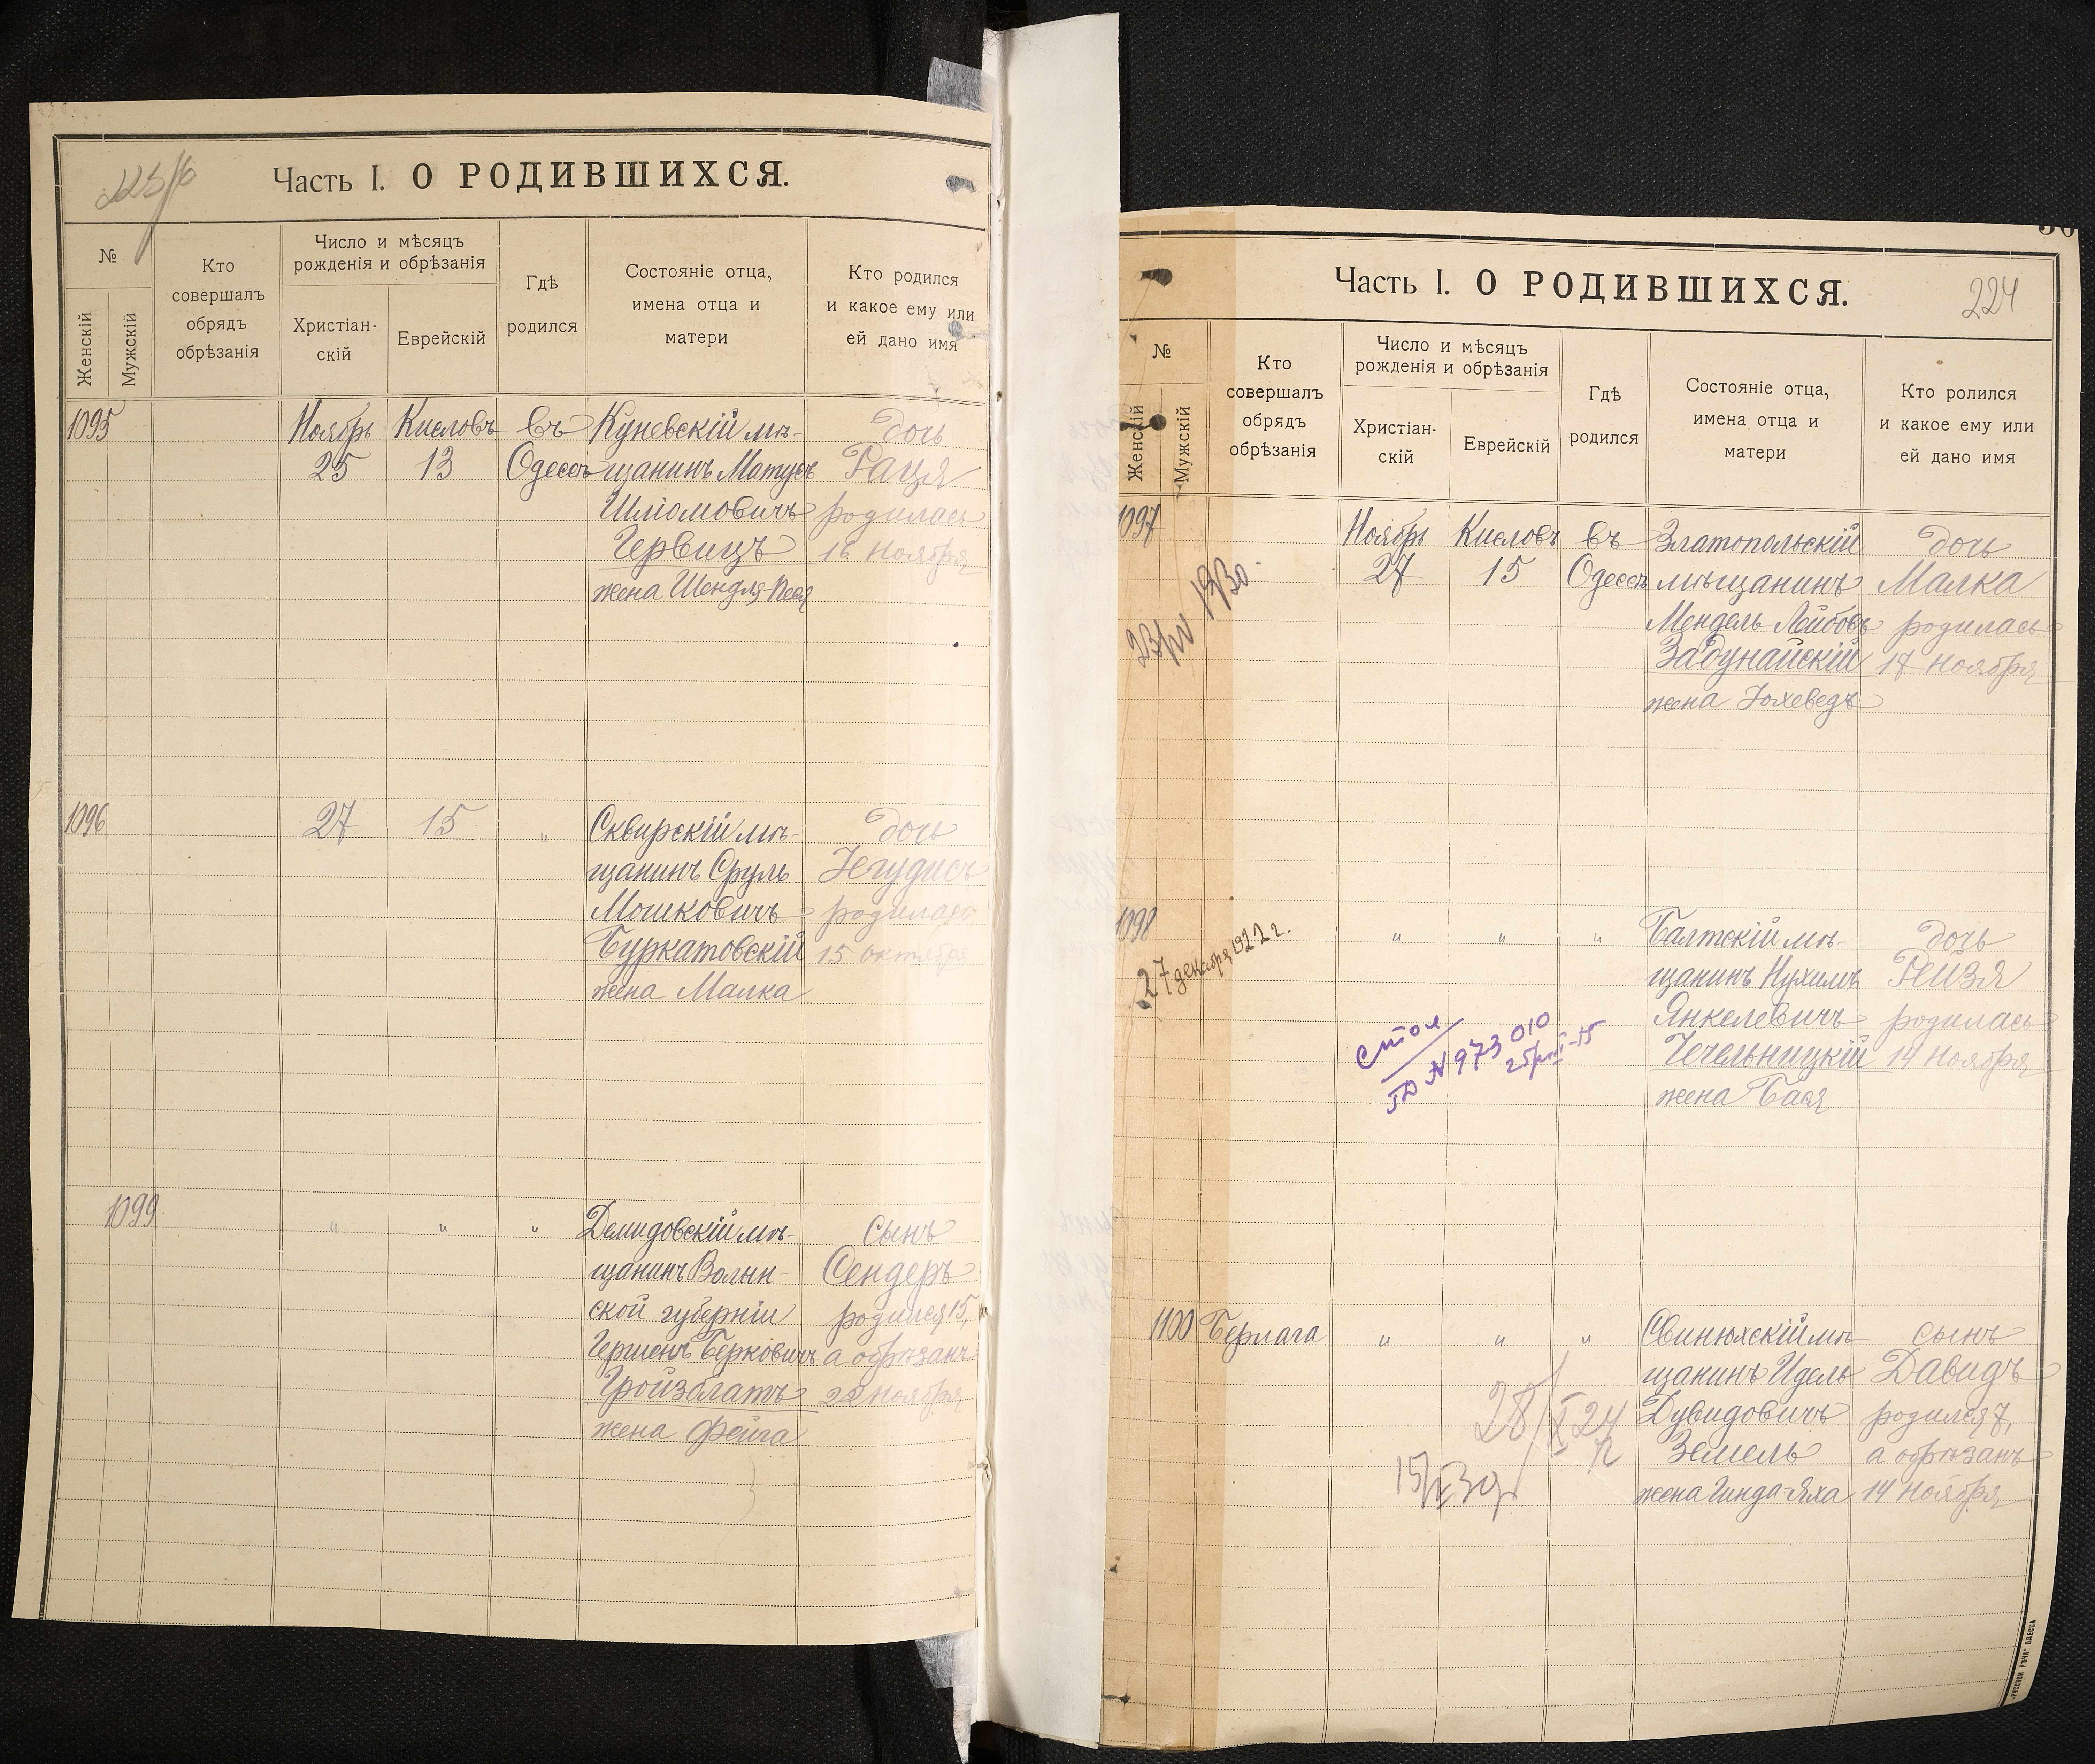 Часть I. О РОДИВШИХСЯ.
№
Женскій
Мужскій
Кто
совершалъ
обрядъ
обрѣзанія
Число и мѣсяцъ
рожденія и обрѣзанія
Христіан-
скій
Еврейскій
Гдѣ
родился
Состояніе отца,
имена отца и
матери
Кто родился
и какое ему или
ей дано имя
1095
Ноябрь
25
Кисловъ
13
въ
Одессѣ
Куневскій мѣ-
щанинъ Матусъ
Шліомовичъ
Гервицъ
жена Шендля-Песя
дочь
Раця
родилась
16 Ноября
1096
27
15
"
Сквирскій мѣ-
щанинъ Сруль
Мошковичъ
Буркатовскій
жена Малка
дочь
Іегудисъ
родилась
15 октября
1099
"
"
"
Демидовскій мѣ-
щанинъ Волын-
ской губерніи
Гершенъ Берковичъ
Гройзблатъ
жена Фейга
сынъ
Сендеръ
родился 15,
а обрѣзанъ
22 Ноября
Часть I. О РОДИВШИХСЯ.
224
№
Женскій
Мужскій
Кто
совершалъ
обрядъ
обрѣзанія
Число и мѣсяцъ
рожденія и обрѣзанія
Христіан-
скій
Еврейскій
Гдѣ
родился
Состояніе отца,
имена отца и
матери
Кто ролился
и какое ему или
ей дано имя
1097
Ноябрь
27
Кисловъ
15
въ
Одессѣ
Златопольскій
мѣщанинъ
Мендель Лейбовъ
Задунайскій
жена Іохеведъ
дочь
Малка
родилась
17 Ноября
23/IV 1930.
1098
27 декабря 1922 г.
"
"
"
Балтскій мѣ-
щанинъ Нухимъ
Янкелевичъ
Чечельницкій
жена Бася
дочь
Рейзя
родилась
14 Ноября
стол
N 973010
1100
Берлага
"
"
"
Свинюхскій мѣ-
щанинъ Идель
Дувидовичъ
Земель
жена Гинда-Яха
сынъ
Давидъ
родился 7,
а обрѣзанъ
14 Ноября
„РУССКОЙ РѢЧИ" ОДЕССА